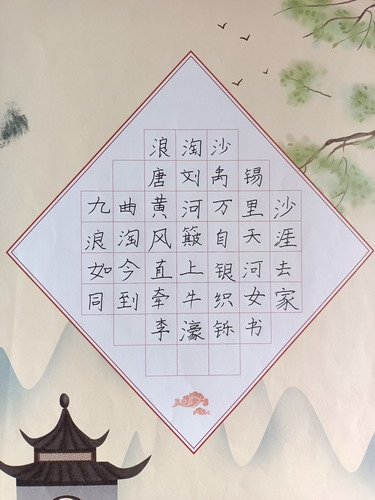 浪淘沙
唐刘禹锡
九曲黄河万里沙
浪淘风簸自天涯
如今直上银河去
同到牵牛织女家
李濠铄书